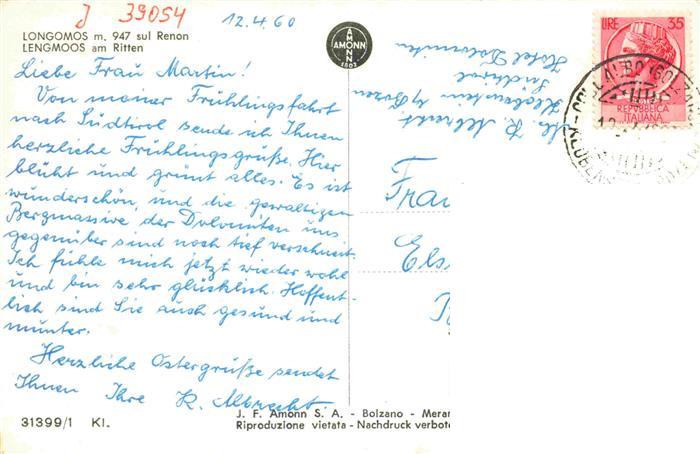 J 39054
12.4.60
LONGOMOS m. 947 sul Renon
LENGMOOS am Ritten
Liebe Frau Martin!
Von meiner Frühlingsfahrt
nach Südtirol sende ich Ihnen
herzliche Frühlingsgrüße. Hier
blüht und grünt alles. Es ist
wunderschön, und die gewaltigen
Bergmassive der Dolomiten uns
gegenüber sind noch tief verschneit.
Ich fühle mich jetzt wieder wohl
und bin sehr glücklich. Hoffent-
lich sind Sie auch gesund und
munter.
Herzliche Ostergrüße sendet
Ihnen Ihre K. Albrecht.
31399/1 Kl.
AMONN
1802
K. Albrecht
Klobenstein b/Bozen
Südtirol
Hotel Dolomiten
LIRE 35
REPVBBLICA
ITALIANA
COLLALBO
Frau
Els
J. F. Amonn S. A. - Bolzano - Meran
Riproduzione vietata - Nachdruck verbot